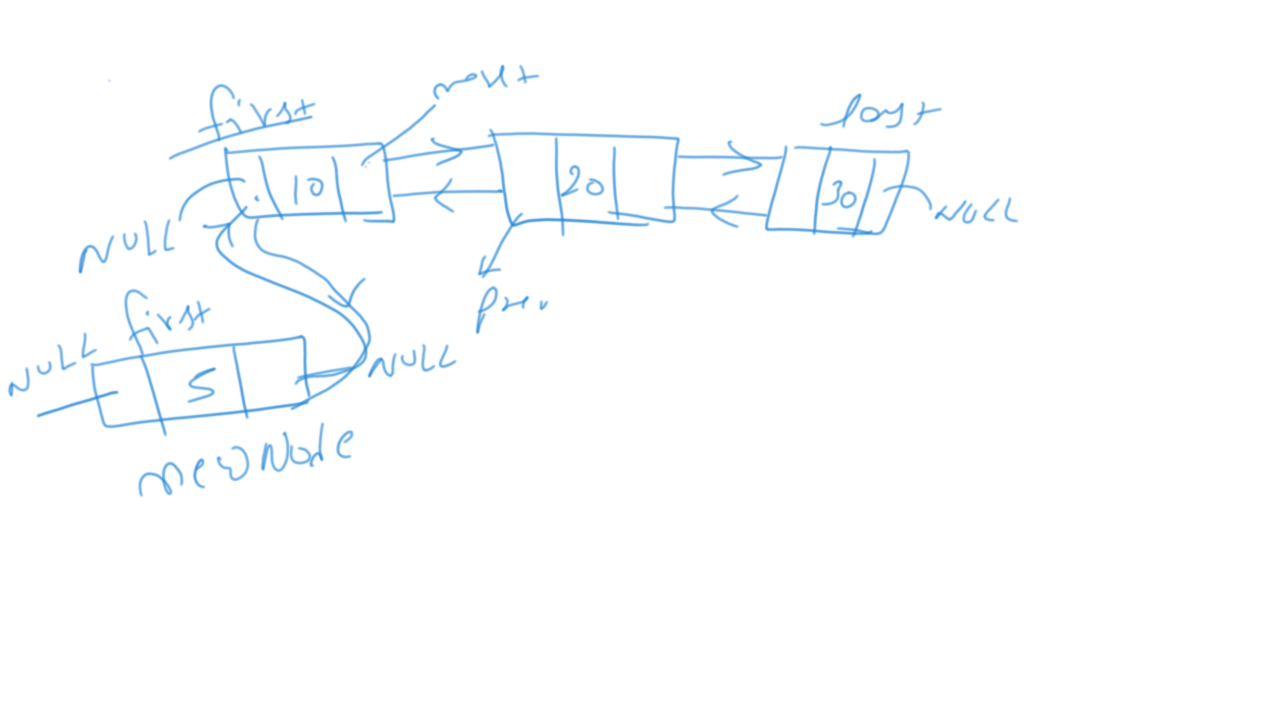 next
first
last
10
20
30
NULL
NULL
prev
first
NULL
5
NULL
newNode